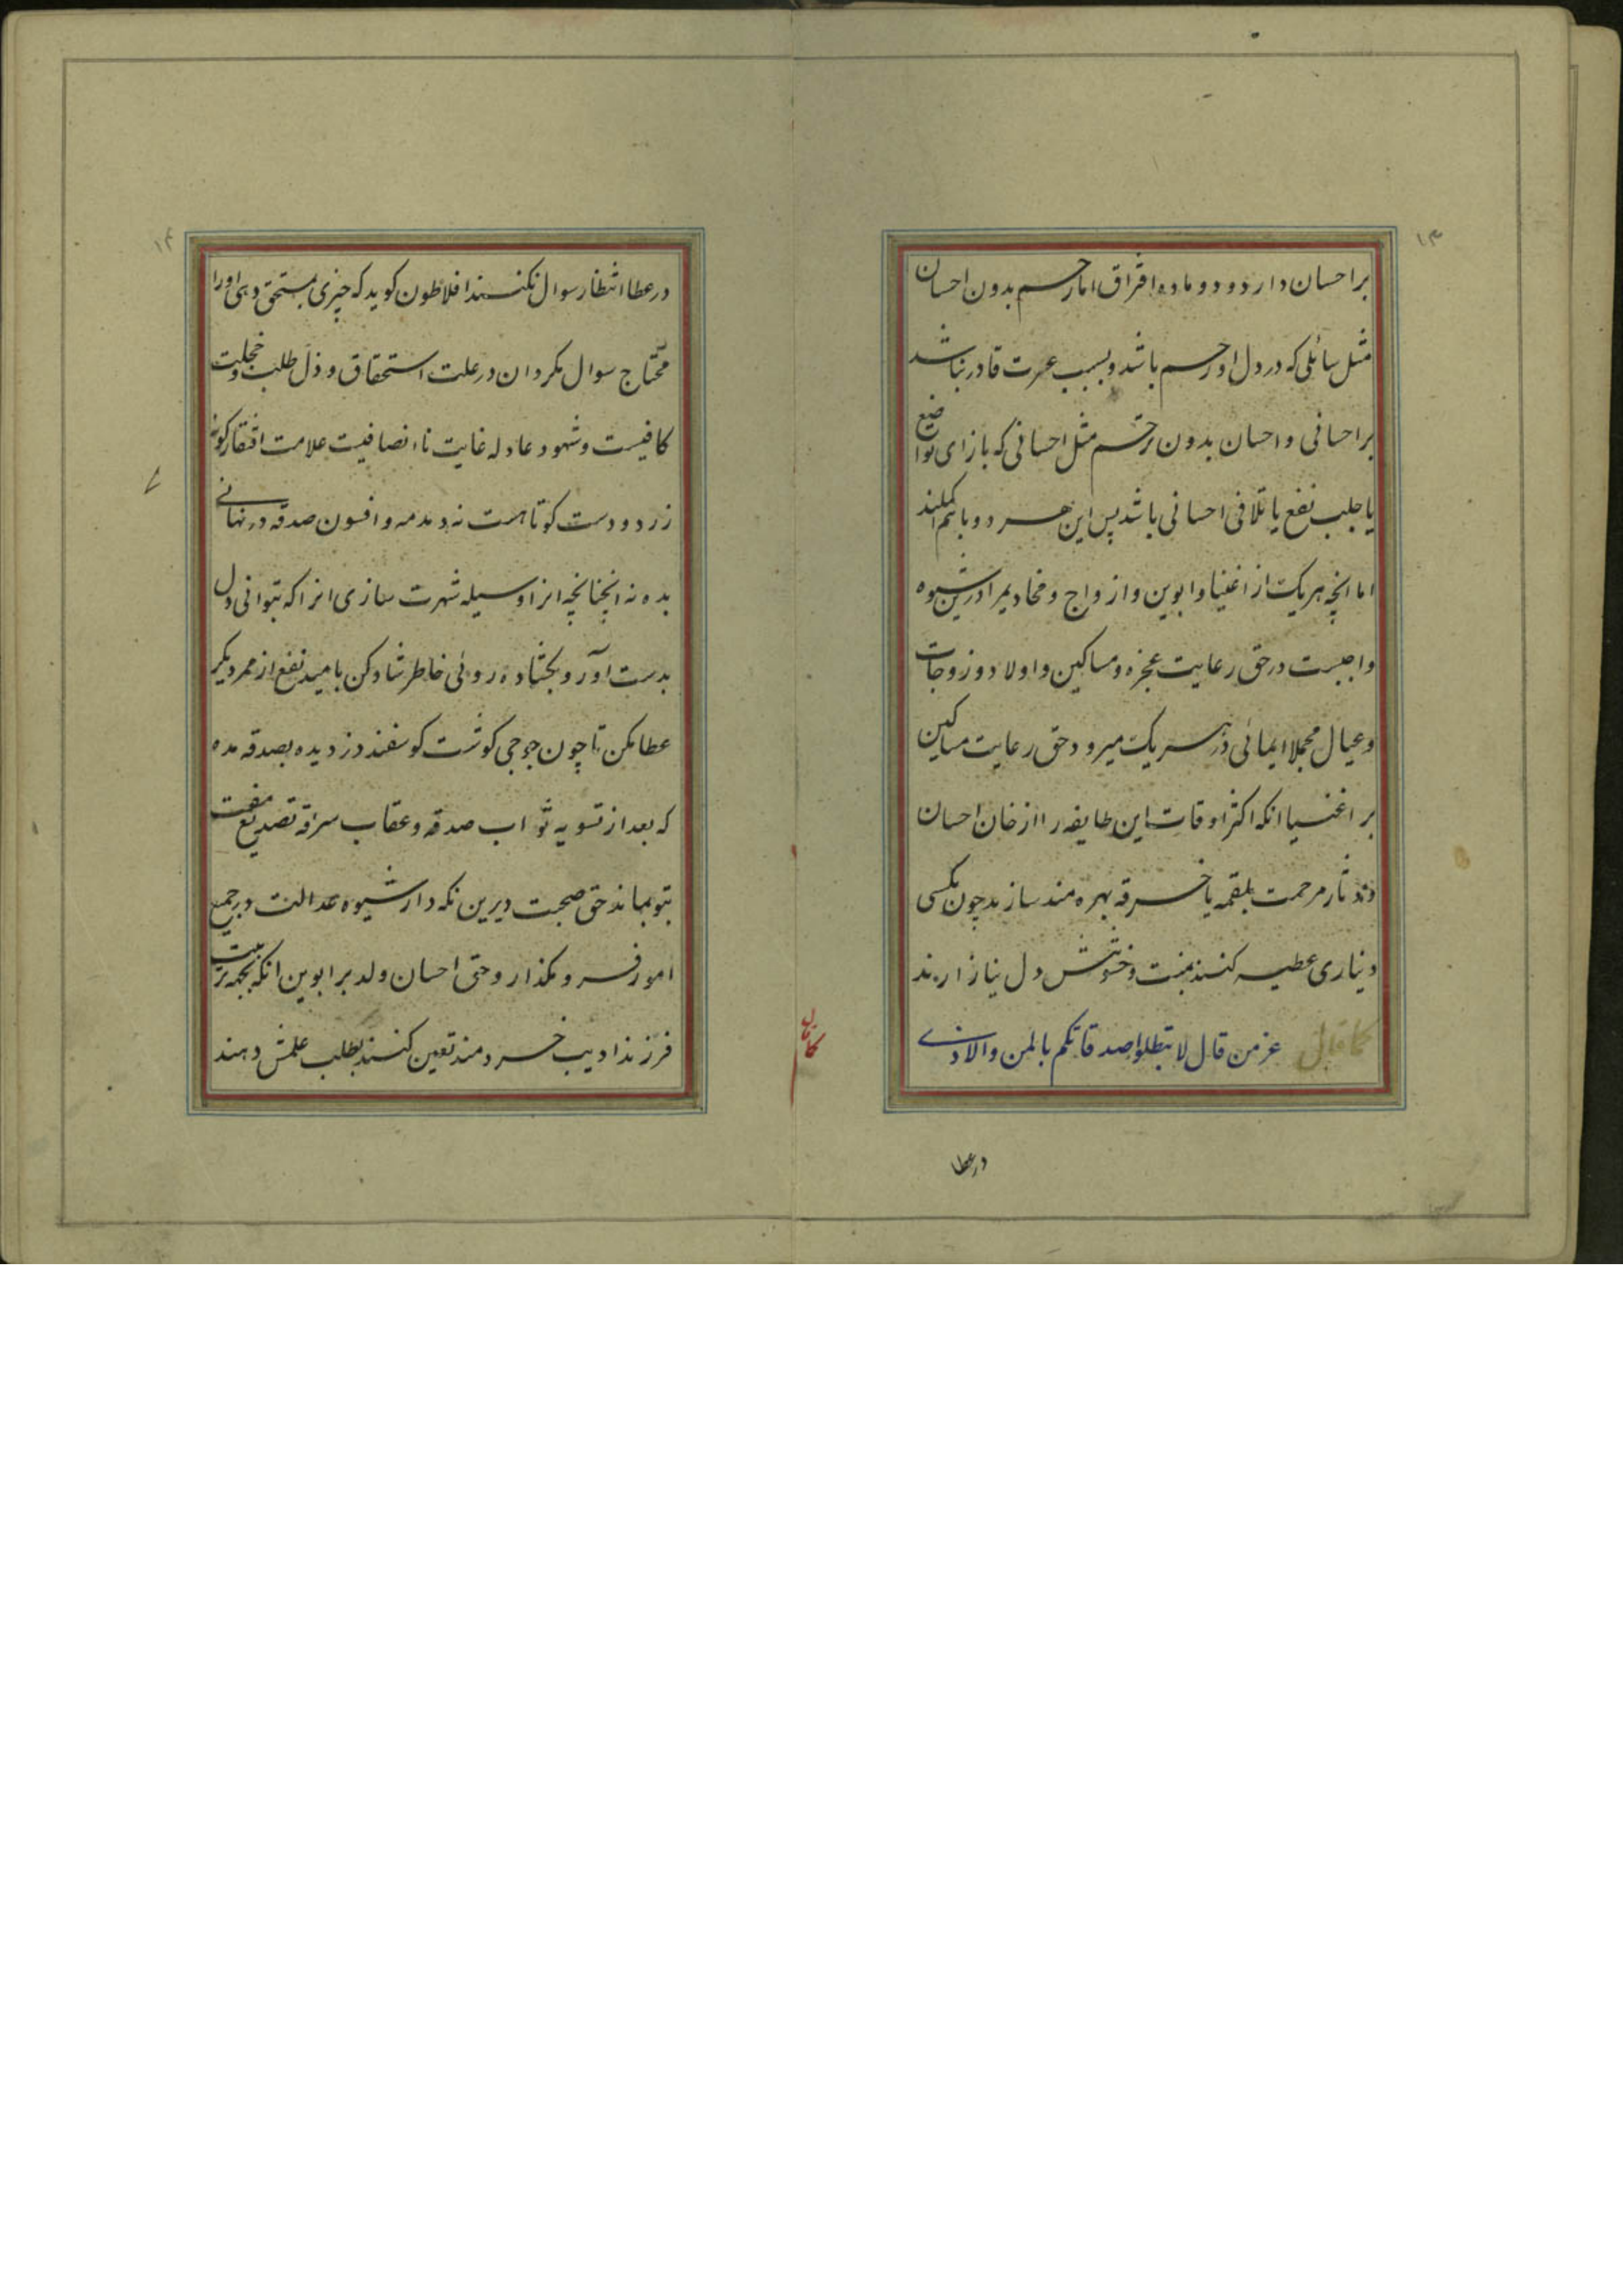 ۱۳
بر احسان دارد و دو ماده افتراق اما رحم بدون احسان
مثل سائلی که در دل او رحم باشد و بسبب عسرت قادر نباشد
بر احسانی و احسان بدون ترحم مثل احسانی که بازای تواضع
یا جلب نفع یا تلافی احسانی باشد پس این هر دو باهم
اما انچه هریک از اغنیا و ابوین و ازواج و مخادیم را درین شیوه
واجبست در حق رعایت عجزه و مساکین و اولاد و زوجات
و عیال مجملا ایمائی در هر یک میرود حق رعایت مساکین
بر اغنیا انکه اکثر اوقات این طایفه را از خان احسان
و نثار مرحمت بلقمه یا خرقه بهره مند سازند چون بکسی
دیناری عطیه کنند بمنت و خشونتش دل نیازارند
کما قال عز من قال لا تبطلوا صدقاتکم بالمن والاذی
در عطا
کما قال
۱۴
در عطا انتظار سوال نکنند افلاطون کوید که چیزی بمستحق دهی او را
محتاج سوال مکردان در علت استحقاق و ذل طلب و خجلت
کافیست و شهود عادله غایت نا انصافیست علامت افتقار کونه
زرد و دست کوتاهست نه دمدمه و افسون صدقه در نهانی
بده نه انچنانچه انرا وسیله شهرت سازی انرا که بتوانی دل
بدست آور و بکشاده روئی خاطر شاد کن بامید نفع از ممر دیکر
عطا مکن تا چون جوجی کوشت کوسفند دزدیده بصدقه مده
که بعد از تسویه ثواب صدقه و عقاب سرقه تصدیع مفت
بتو بماند حق صحبت دیرین نکه دار شیوه عدالت در جمیع
امور فرو مکذار و حق احسان ولد بر ابوین انکه بجهة تربیت
فرزند ادیب خردمند تعین کنند بطلب علمش دهند